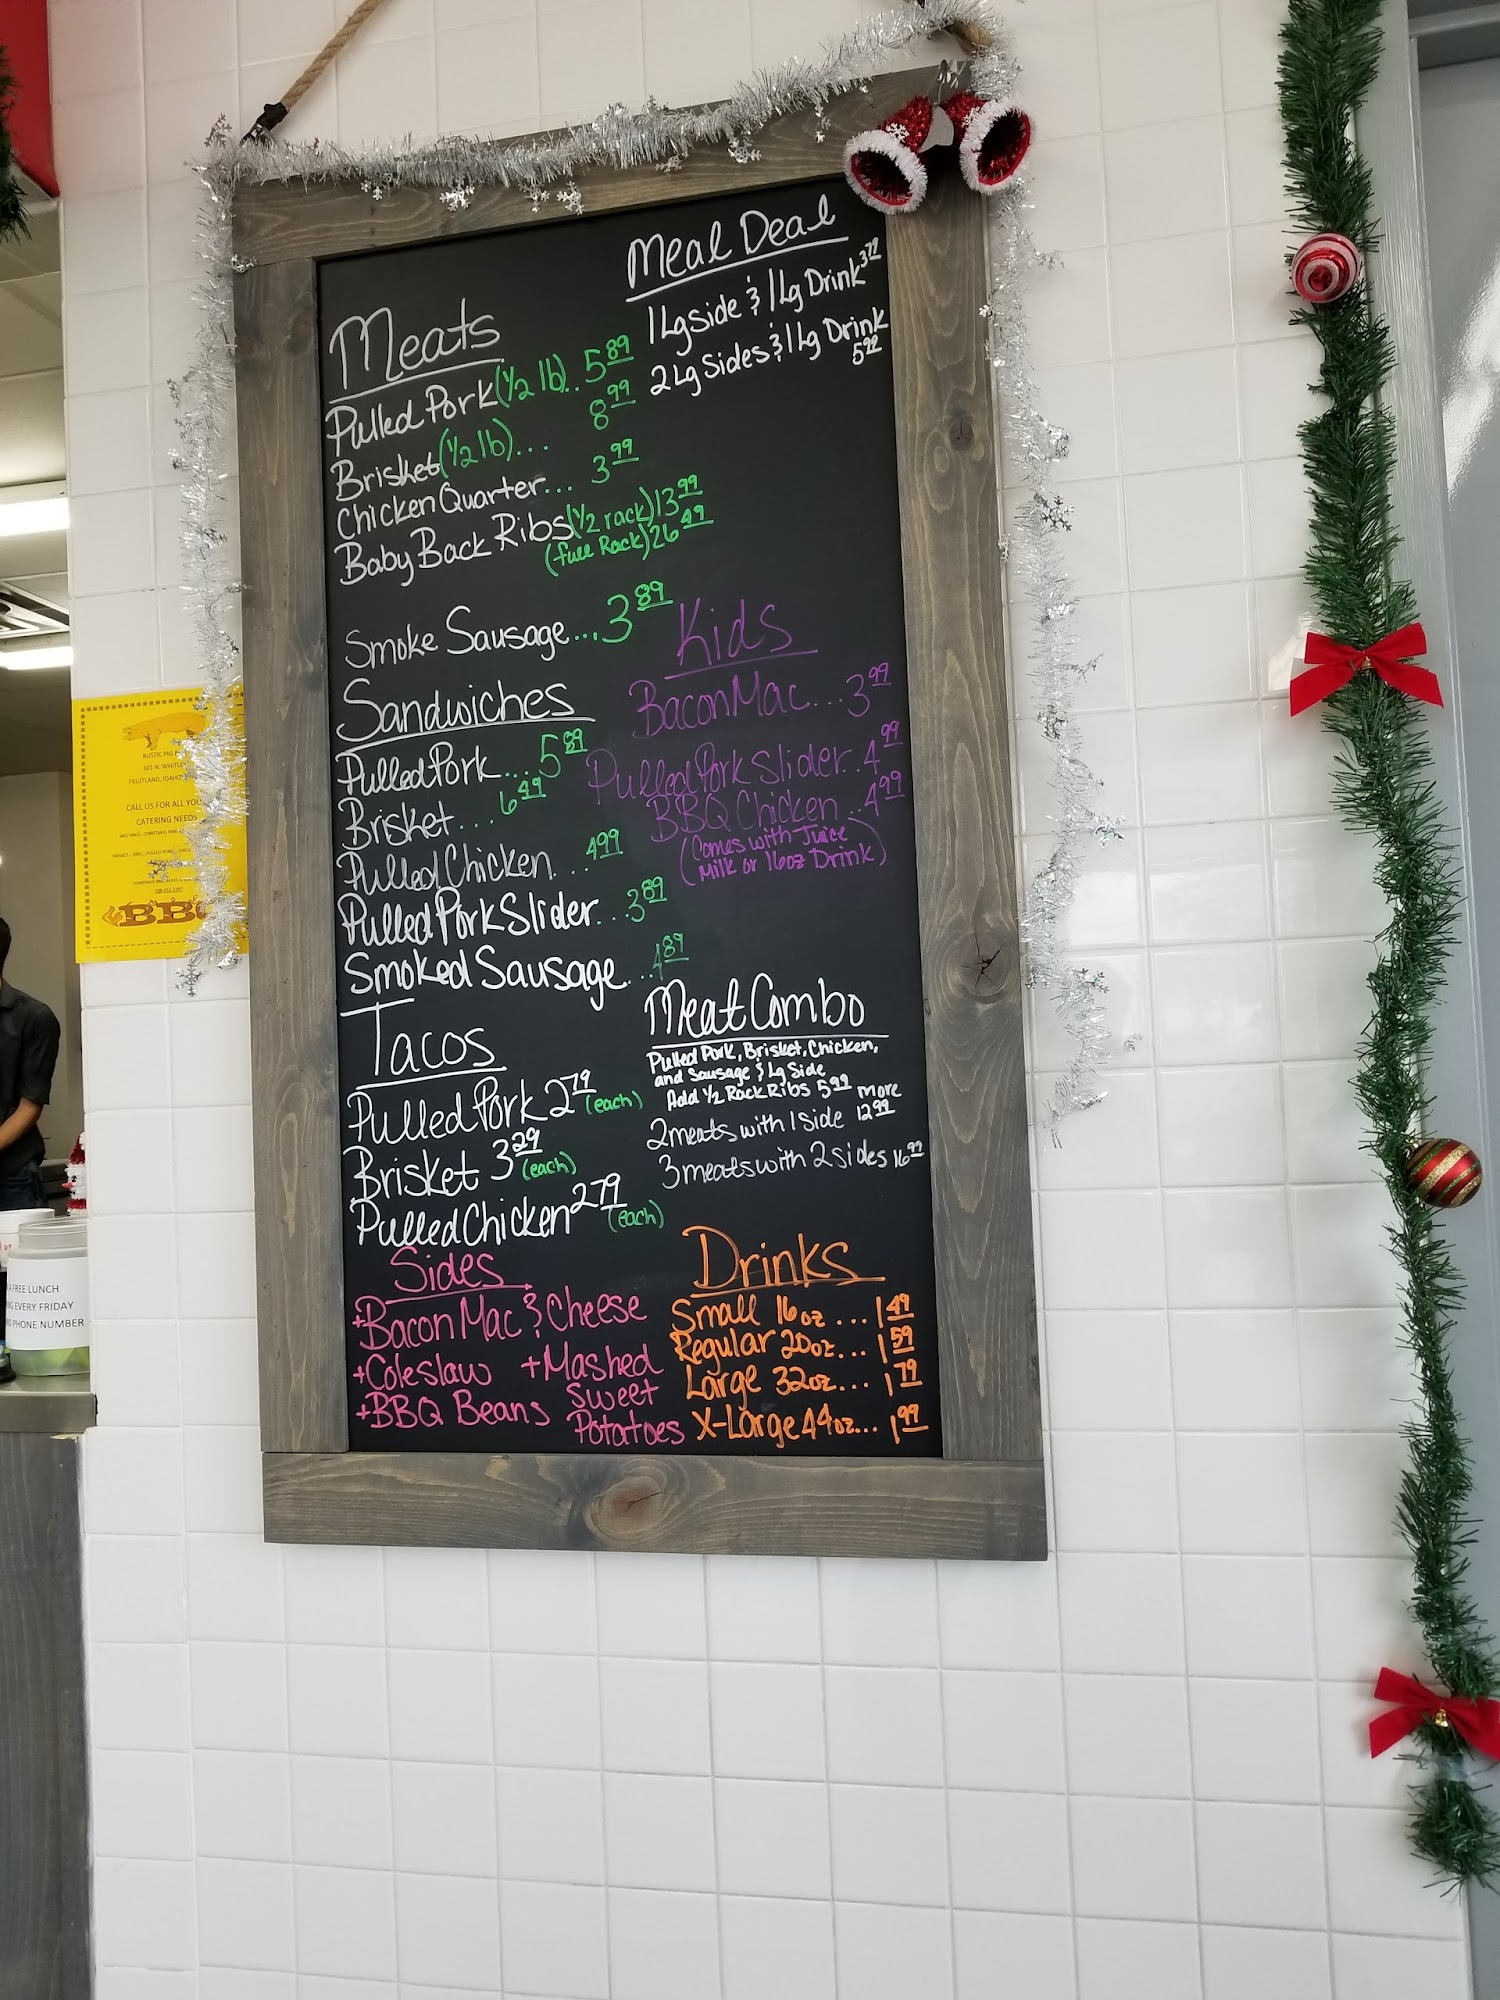 Meal Deal
1 Lg side & 1 Lg Drink 3.79
2 Lg Sides & 1 Lg Drink
5.99
Meats
Pulled Pork (1/2 lb).. 5.89
Brisket (1/2 lb)... 8.99
Chicken Quarter... 3.99
Baby Back Ribs (1/2 rack) 13.99
(full Rack) 26.49
Smoke Sausage... 3.89
Kids
Bacon Mac... 3.99
Pulled Pork Slider.. 4.99
BBQ Chicken.. 4.99
(Comes with Juice
Milk or 16oz Drink)
Sandwiches
Pulled Pork.... 5.89
Brisket... 6.49
Pulled Chicken... 4.99
Pulled Pork Slider... 3.89
Smoked Sausage... 4.89
Meat Combo
Pulled Pork, Brisket, Chicken,
and Sausage & Lg Side
Add 1/2 Rack Ribs 5.99 more
2 meats with 1 side 12.99
3 meats with 2 sides 16.99
Tacos
Pulled Pork 2.79 (each)
Brisket 3.29 (each)
Pulled Chicken 2.79 (each)
Sides
+Bacon Mac & Cheese
+Coleslaw +Mashed
Sweet
+BBQ Beans Potatoes
Drinks
Small 16oz... 1.49
Regular 20oz... 1.59
Large 32oz... 1.79
X-Large 44oz... 1.99
RUSTIC PIG
301 N. WHITLE
FRUITLAND, IDAHO
CALL US FOR ALL YOU
CATERING NEEDS
BB
FREE LUNCH
EVERY FRIDAY
PHONE NUMBER